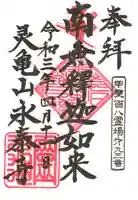 奉拝
甲斐百八霊場第九二番
南無釋迦如来
令和三年四月十一日
霊亀山永泰寺